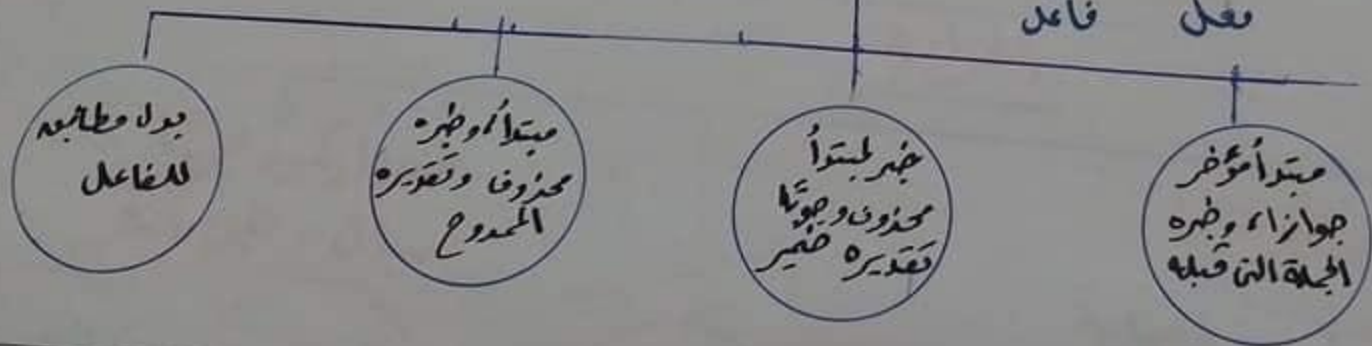 فعل فاعل
مبتدأ مؤخر
جوازاً، وخبره
الجملة التي قبله
خبر لمبتدأ
محذوف وجوبًا
تقديره ضمير
مبتدأ، وخبره
محذوف وتقديره
الممدوح
بدل مطابق
للفاعل